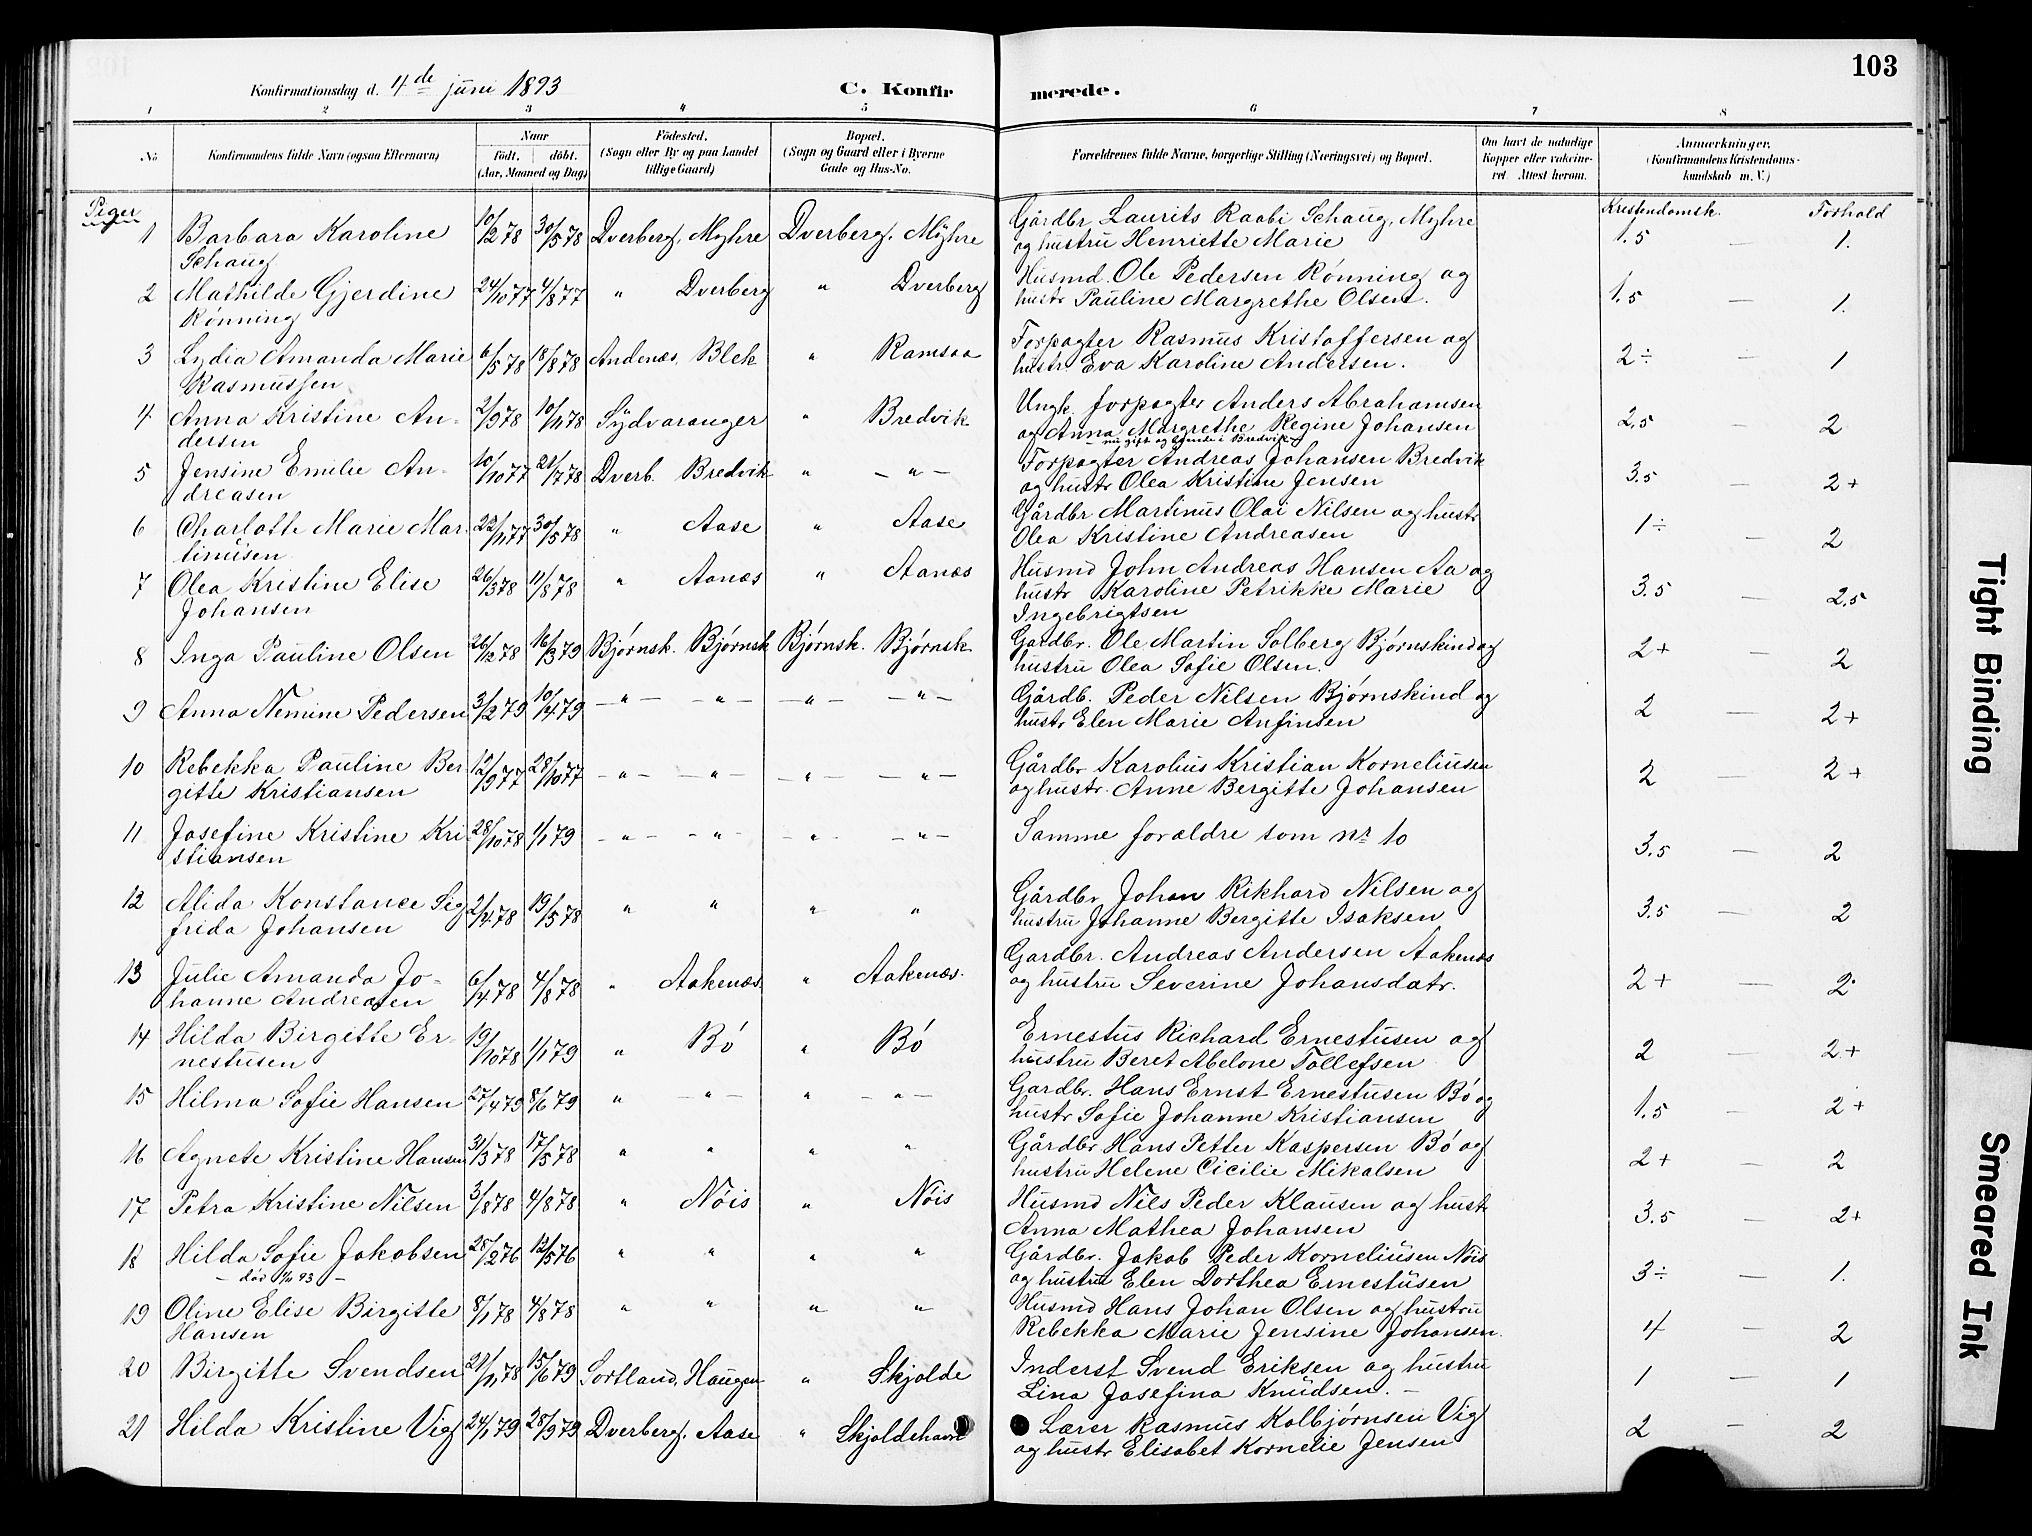 103
Konfirmationsdag d. 4de juni 1893 C. Konfirmerede.
1 2 3 4 5 6 7 8
No Konfirmandens fulde Navn (ogsaa Efternavn) Naar födt. döbt. (Aar, Maaned og Dag) Födested. (Sogn eller By og paa Landet tillige Gaard) Bopæl. (Sogn og Gaard eller i Byerne Gade og Hus-No. Forældrenes fulde Navne, borgerlige Stilling (Næringsvei) og Bopæl. Om havt de naturlige Kopper eller vakcineret. Attest herom. Anmærkninger. (Konfirmandens Kristendomskundskab m. V.)
Piger Kristendomsk. Forhold
1 Barbara Karoline 10/12 78 30/5 78 Dverberg, Myhre Dverberg, Myhre Gårdbr. Laurits Raabi Schaug, Myhre 1.5 — 1.
Schaug og hustru Henriette Marie
2 Mathilde Gjerdine 24/10 77 4/8 77 " Dverberg " Dverberg Husmd. Ole Pedersen Rønning og 1.5 — 1.
Rønning hustr Pauline Margrethe Olsen.
3 Lydia Amanda Marie 6/5 78 18/8 78 Andenæs, Blek " Ramsaa Forpagter Rasmus Kristoffersen og 2÷ — 1
Rasmussen hustr. Eva Karoline Andersen.
4 Anna Kristine An- 2/9 78 10/11 78 Sydvaranger " Bredvik Ungk. forpagter Anders Abrahamsen 2,5 — 2
dersen og Anna Margrethe Regine Johansen
nu gift og boende i Bredvik
5 Jensine Emilie An- 10/10 77 21/7 78 Dverb. Bredvik " — " — Forpagter Andreas Johansen Bredvik 3.5 — 2+
dreasen og hustr Olea Kristine Jensen
6 Charlotte Marie Mar- 22/11 77 30/5 78 " Aase " Aase Gårdbr Martinus Olai Nilsen og hustr 1÷ — 2
tinusen Olea Kristine Andreasen
7 Olea Kristine Elise 26/3 78 11/8 78 " Aanæs " Aanæs Husmd John Andreas Hansen Aa og 3.5 — 2,5
Johansen hustr Karoline Petrikke Marie
Ingebrigtsen
8 Inga Pauline Olsen 26/12 78 16/3 79 Bjørnsk. Bjørnsk Bjørnsk. Bjørnsk Gardbr. Ole Martin Solberg Bjørnskind og 2+ — 2
hustru Olea Sofie Olsen.
9 Anna Nemine Pedersen 3/2 79 10/4 79 — " — — " — — " — — " — Gårdb. Peder Nilsen Bjørnskind og 2 — 2+
hustr Elen Marie Anfinsen
10 Rebekka Pauline Ber- 12/9 77 28/10 77 — " — " — " — — " — Gårdbr Karolius Kristian Korneliusen 2 — 2+
gitte Kristiansen og hustr. Anne Bergitte Johansen
11 Josefine Kristine Kri- 28/10 78 1/1 79 — " — — " — — " — — " — Samme forældre som nr 10 3.5 — 2
stiansen
12 Alida Konstance Sig 2/4 78 19/5 78 " " " " Gårdbr Johan Rikhard Nilsen og 3.5 — 2
frida Johansen hustru Johanne Bergitte Isaksen
13 Julie Amanda Jo- 6/4 78 4/8 78 " Aakenæs " Aakenæs. Gardbr. Andreas Andersen Aakenæs 2+ — 2
hanne Andreasen og hustru Severine Johansdatr.
14 Hilda Birgitte Er- 19/10 78 1/1 79 " Bó " Bó Ernestus Richard Ernestusen og 2 2+
nestusen hustru Beret Abelone Tollefsen
15 Hilma Sofie Hansen 27/4 79 8/6 79 " — " — " — " — Gardbr. Hans Ernst Ernestusen Bó og 1.5 — 2+
hustr Sofie Johanne Kristiansen
16 Agnete Kristine Hansen 31/3 78 17/5 78 " " " " Gårdbr Hans Petter Kaspersen Bó og 2+ — 2
hustru Helene Cicilie Mikalsen
17 Petra Kristine Nilsen 3/1 878 4/8 78 " Nóis " Nóis Husmd Nils Peder Klausen og hustr 3.5 — 2+
Anna Mathea Johansen
18 Hilda Sofie Jakobsen 25/2 76 12/5 76 " " " " Gårdbr. Jakob Peder Korneliusen Nóis 3÷ — 1.
— død 93 — og hustru Elen Dorthea Ernestusen
19 Oline Elise Birgitte 8/1 78 4/8 78 " " " " Husmd Hans Johan Olsen og hustru 4 — 2
Hansen Rebekka Marie Jensine Johansen.
20 Birgitte Svendsen 21/11 78 15/6 79 Sortland, Haugen " Skjolde Inderst Svend Eriksen og hustru 1 — 1
Lina Josefina Knudsen. —
21 Hilda Kristine Vig 24/1 79 28/9 79 Dverberg, Aase " Skjoldehavn Lærer Rasmus Kolbjørnsen Vig 2 — 2
og hustr Elisabet Kornelie Jensen
Tight Binding
Smeared Ink